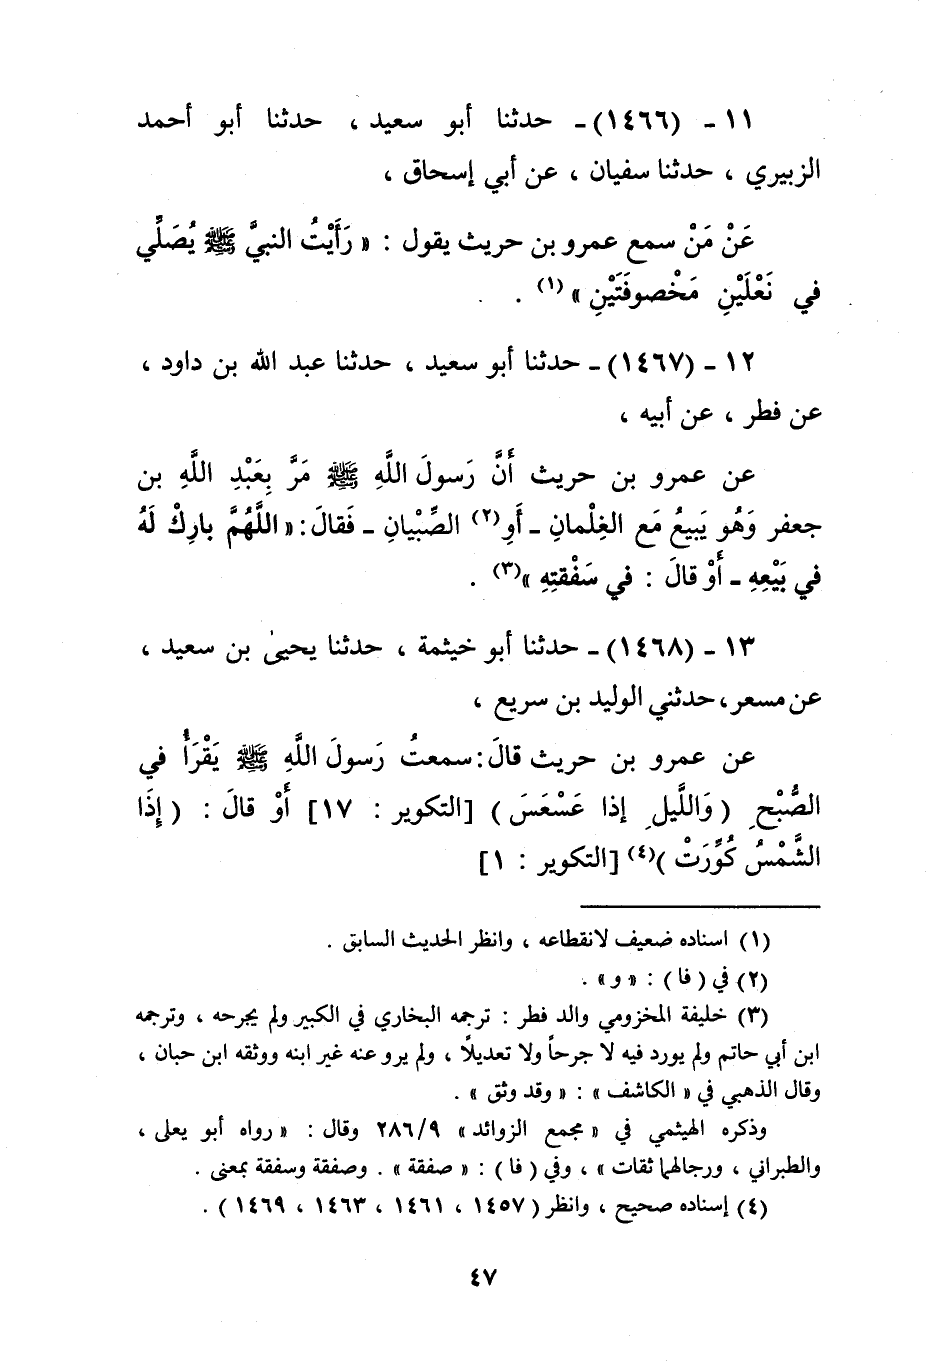 ١١ ـ (١٤٦٦)ـ حدثنا أبو سعيد ، حدثنا أبو أحمد
الزبيري ، حدثنا سفيان ، عن أبي إسحاق ،
عَنْ مَنْ سمع عمرو بن حريث يقول : « رَأَيْتُ النبيَّ ﷺ يُصَلِّي
في نَعْلَيْنِ مَخْصوفَتَيْنِ »(١) .
١٢ ـ (١٤٦٧)ـ حدثنا أبو سعيد ، حدثنا عبد الله بن داود ،
عن فطر ، عن أبيه ،
عن عمرو بن حريث أَنَّ رَسولَ اللَّهِ ﷺ مَرَّ بِعَبْدِ اللَّهِ بن
جعفر وَهُو يَبيعُ مَع الغِلْمانِ ـ أَوِ(٢) الصِّبْيانِ ـ فَقالَ: « اللَّهُمَّ بارِكْ لَهُ
في بَيْعِهِ ـ أَوْ قالَ : في سَفْقتِهِ »(٣) .
١٣ ـ (١٤٦٨)ـ حدثنا أبو خيثمة ، حدثنا يحيىٰ بن سعيد ،
عن مسعر، حدثني الوليد بن سريع ،
عن عمرو بن حريث قالَ: سمعتُ رَسولَ اللَّهِ ﷺ يَقْرَأُ في
الصُّبْحِ ( وَاللَّيلِ إذا عَسْعَسَ ) [التكوير : ١٧] أَوْ قالَ : ( إِذَا
الشَّمْسُ كُوِّرَتْ )(٤) [التكوير : ١]
(١) اسناده ضعيف لانقطاعه ، وانظر الحديث السابق .
(٢) في ( فا ) : « و » .
(٣) خليفة المخزومي والد فطر : ترجمه البخاري في الكبير ولم يجرحه ، وترجمه
ابن أبي حاتم ولم يورد فيه لا جرحاً ولا تعديلاً ، ولم يرو عنه غير ابنه ووثقه ابن حبان ،
وقال الذهبي في « الكاشف » : « وقد وثق » .
وذكره الهيثمي في « مجمع الزوائد » ٢٨٦/٩ وقال : « رواه أبو يعلى ،
والطبراني ، ورجالهما ثقات » ، وفي ( فا ) : « صفقة » . وصفقة وسفقة بمعنى .
(٤) إسناده صحيح ، وانظر ( ١٤٥٧ ، ١٤٦١ ، ١٤٦٣ ، ١٤٦٩ ) .
٤٧